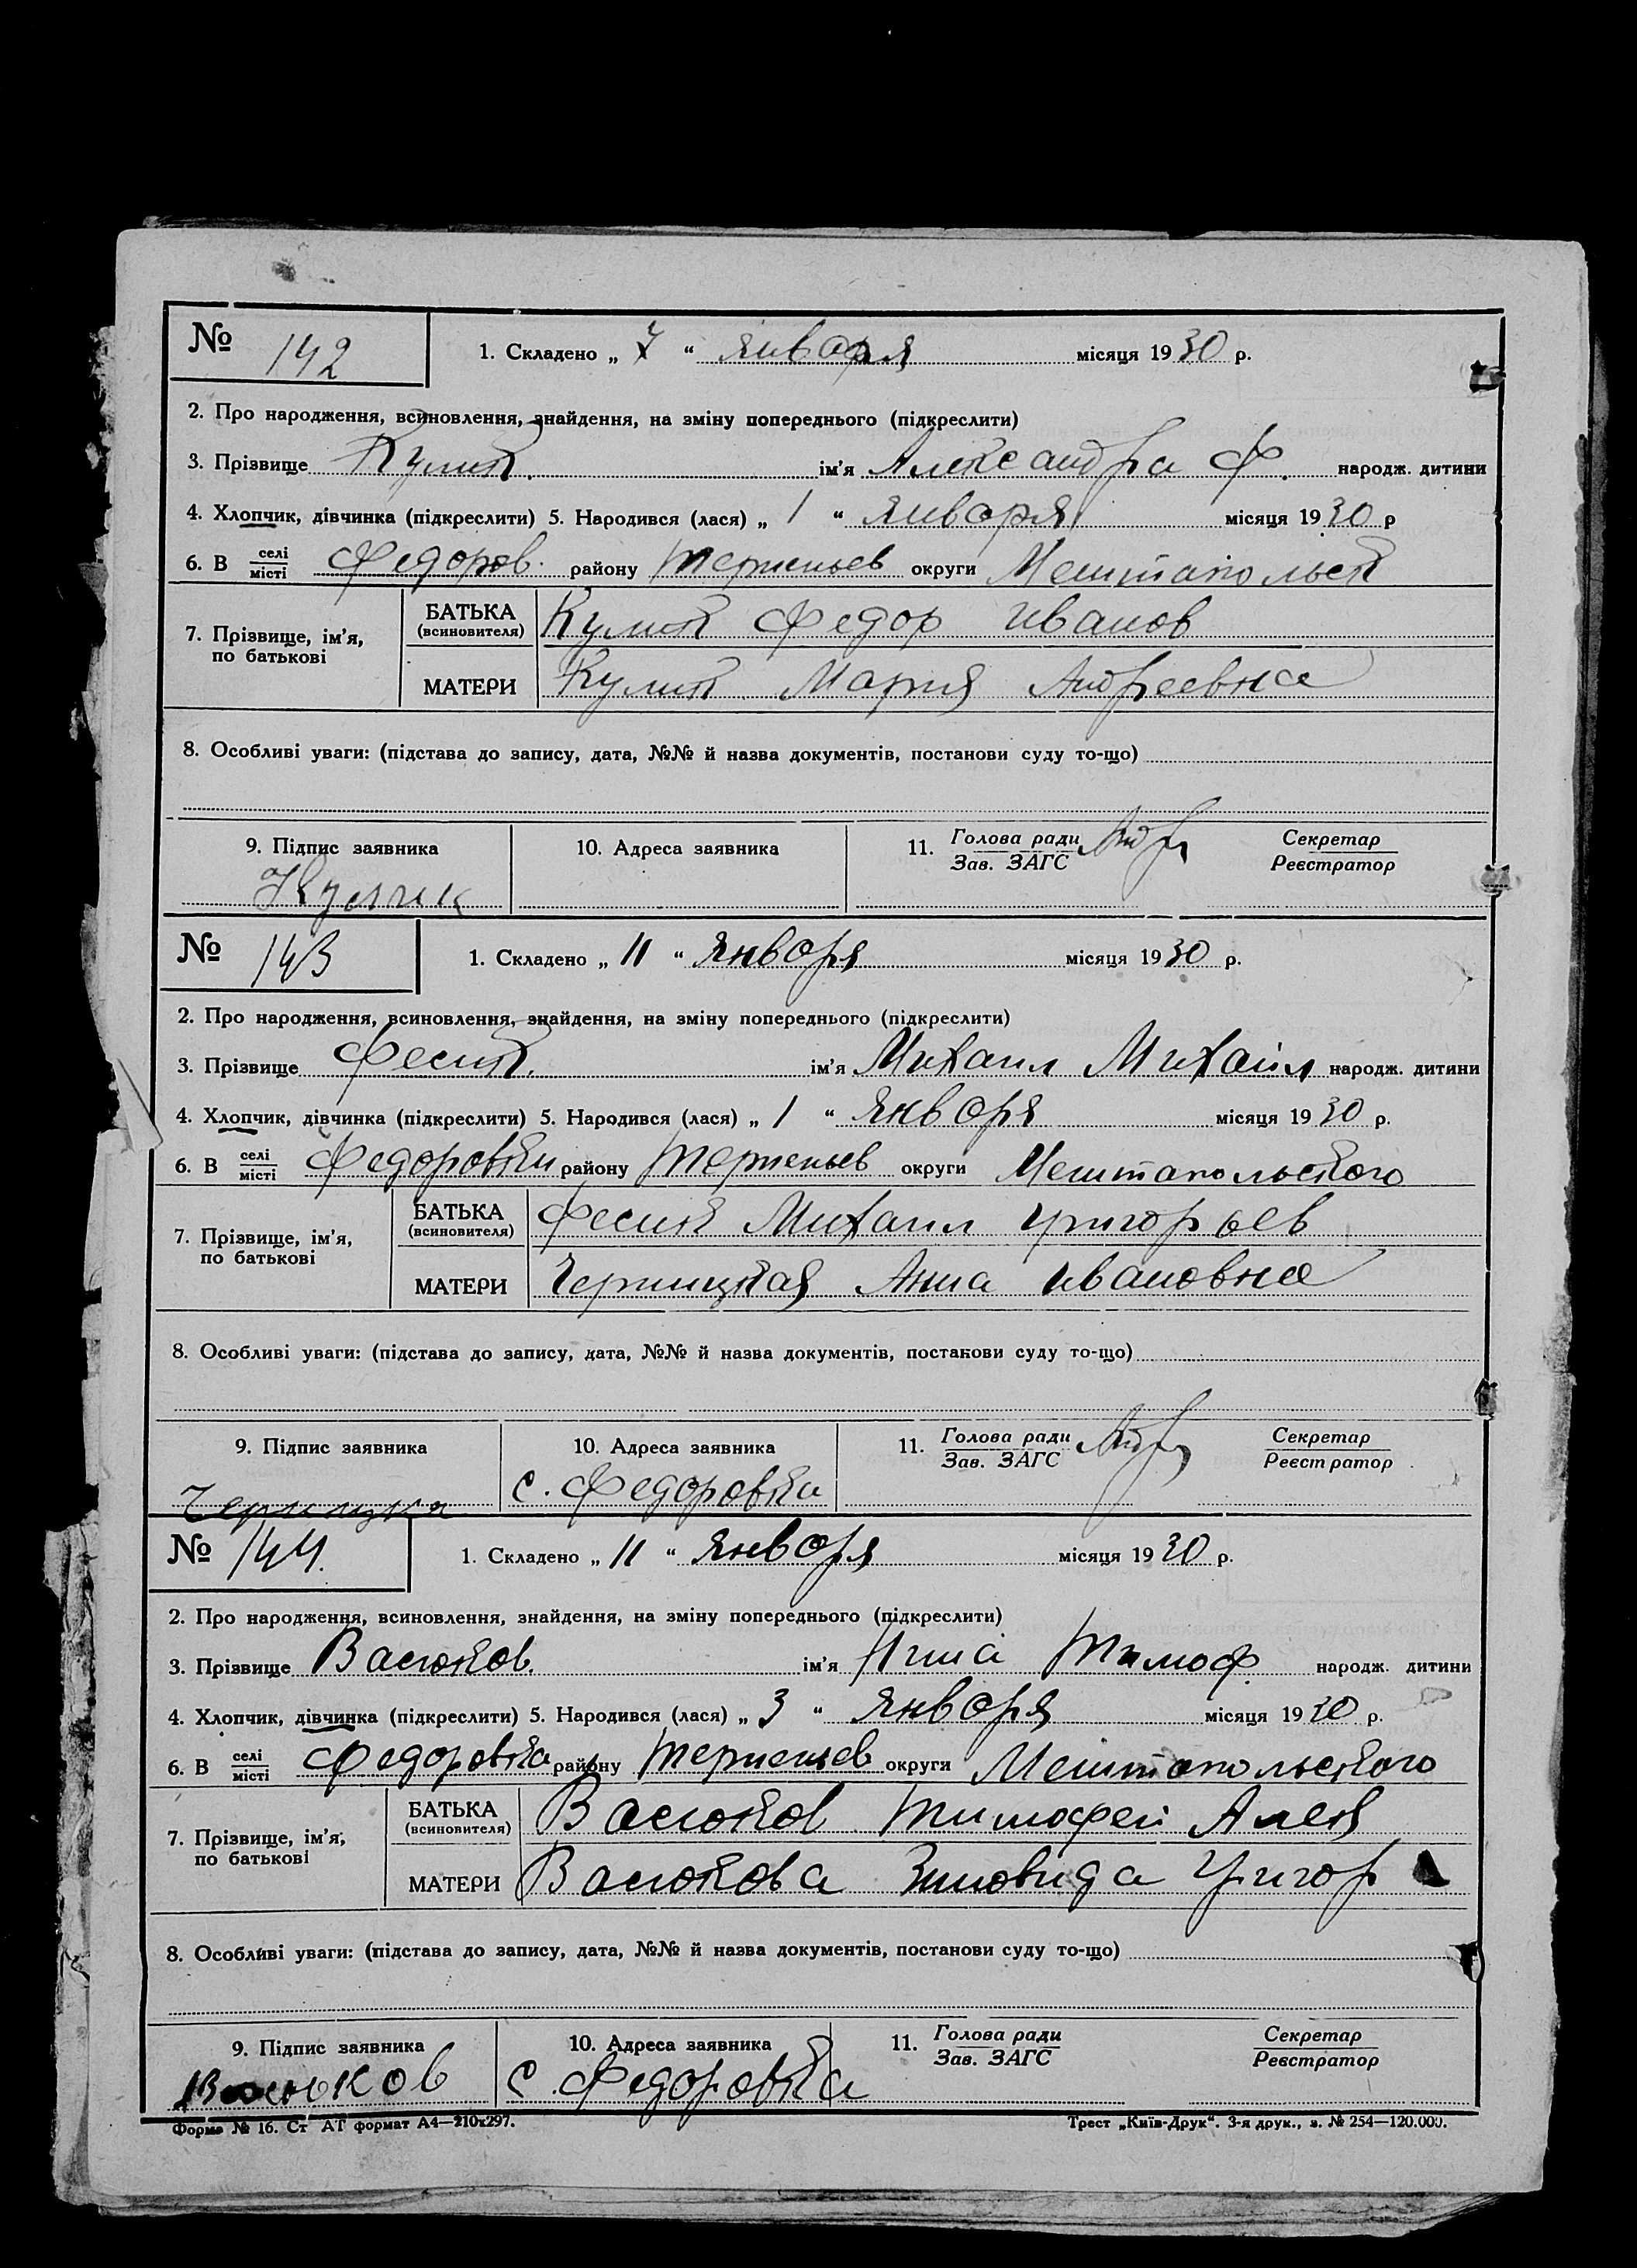 № 142
1. Складено „ 7 “ января місяця 1930 р.
2. Про народження, всиновлення, знайдення, на зміну попереднього (підкреслити)
3. Прізвище Кулик. ім'я Александра Ф. народж. дитини
4. Хлопчик, дівчинка (підкреслити) 5. Народився (лася) „ 1 “ января місяця 1930 р
6. В селі місті Федоров. району Терпеньев округи Мелитапольск
7. Прізвище, ім'я, по батькові
БАТЬКА (всиновителя) Кулик Федор Иванов
МАТЕРИ Кулик Мария Андреевна
8. Особливі уваги: (підстава до запису, дата, №№ й назва документів, постанови суду то-що)
9. Підпис заявника 10. Адреса заявника 11. Голова ради Зав. ЗАГС Секретар Реєстратор
Кулик
№ 143
1. Складено „ 11 “ января місяця 1930 р.
2. Про народження, всиновлення, знайдення, на зміну попереднього (підкреслити)
3. Прізвище Фесик. ім'я Михаил Михаіл народж. дитини
4. Хлопчик, дівчинка (підкреслити) 5. Народився (лася) „ 1 “ января місяця 1930 р.
6. В селі місті Федоровки району Терпеньев округи Мелитапольского
7. Прізвище, ім'я, по батькові
БАТЬКА (всиновителя) Фесик Михаил Григорьев
МАТЕРИ Черницкая Анна Ивановна
8. Особливі уваги: (підстава до запису, дата, №№ й назва документів, постанови суду то-що)
9. Підпис заявника 10. Адреса заявника 11. Голова ради Зав. ЗАГС Секретар Реєстратор
с. Федоровка
№ 144.
1. Складено „ 11 “ января місяця 1930 р.
2. Про народження, всиновлення, знайдення, на зміну попереднього (підкреслити)
3. Прізвище Васюков. ім'я Нина Тимоф. народж. дитини
4. Хлопчик, дівчинка (підкреслити) 5. Народився (лася) „ 3 “ января місяця 1930 р.
6. В селі місті Федоровка району Терпеньев округи Мелитапольского
7. Прізвище, ім'я, по батькові
БАТЬКА (всиновителя) Васюков Тимофей Алек
МАТЕРИ Васюкова Зиновида Григор
8. Особливі уваги: (підстава до запису, дата, №№ й назва документів, постанови суду то-що)
9. Підпис заявника 10. Адреса заявника 11. Голова ради Зав. ЗАГС Секретар Реєстратор
Васюков с. Федоровка
Форма № 16. Ст АТ формат А4—210х297. Трест „Київ-Друк“. 3-я друк., з. № 254—120.000.